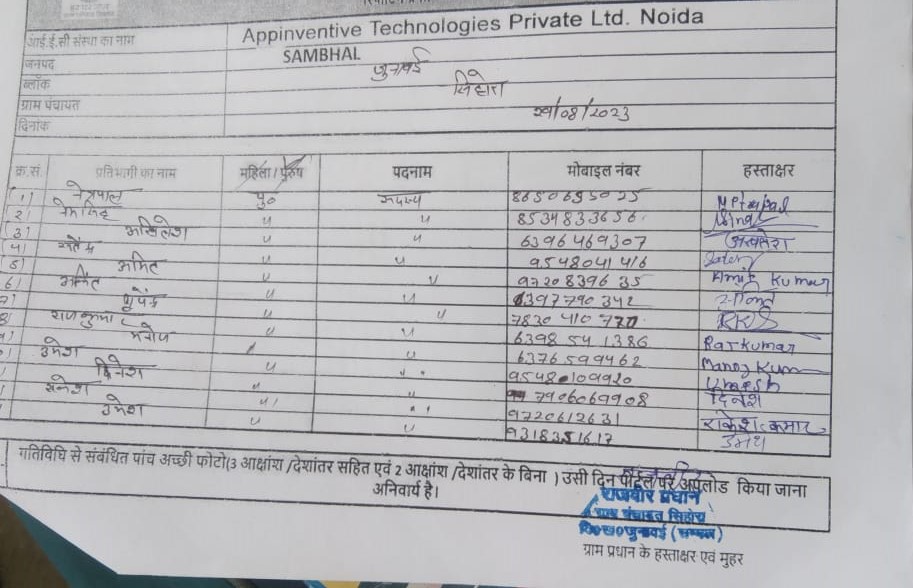 आई.ई.सी संस्था का नाम Appinventive Technologies Private Ltd. Noida
जनपद SAMBHAL
ब्लॉक जुनावई
ग्राम पंचायत सिहोरा
दिनांक 29/08/2023
क्र.सं. प्रतिभागी का नाम महिला / पुरुष पदनाम मोबाइल नंबर हस्ताक्षर
1) नेत्रपाल पु० सदस्य 8650695025
2) नेमसिंह " " 8534833656
3) अखिलेश " " 6396469307
4) " " 9548041416
5) अमित " 9720839635 Amit Kumar
6) " " 6397790342
7) भूपेंद्र " 7830410770 RKS
8) राजकुमार " " 6398541386 Rajkumar
मनोज " 6376599462 Manoj Kum
उमेश " 9548109920 Umesh
दिनेश " " 7906069908 दिनेश
राकेश " " 9720612631 राकेश कुमार
उमेश " " 9318351617
गतिविधि से संबंधित पांच अच्छी फोटो(3 आक्षांश /देशांतर सहित एवं 2 आक्षांश /देशांतर के बिना ) उसी दिन पोर्टल पर अपलोड किया जाना
अनिवार्य है।
राजवीर प्रधान
ग्राम पंचायत सिहोरा
वि०ख०जुनावई (सम्भल)
ग्राम प्रधान के हस्ताक्षर एवं मुहर